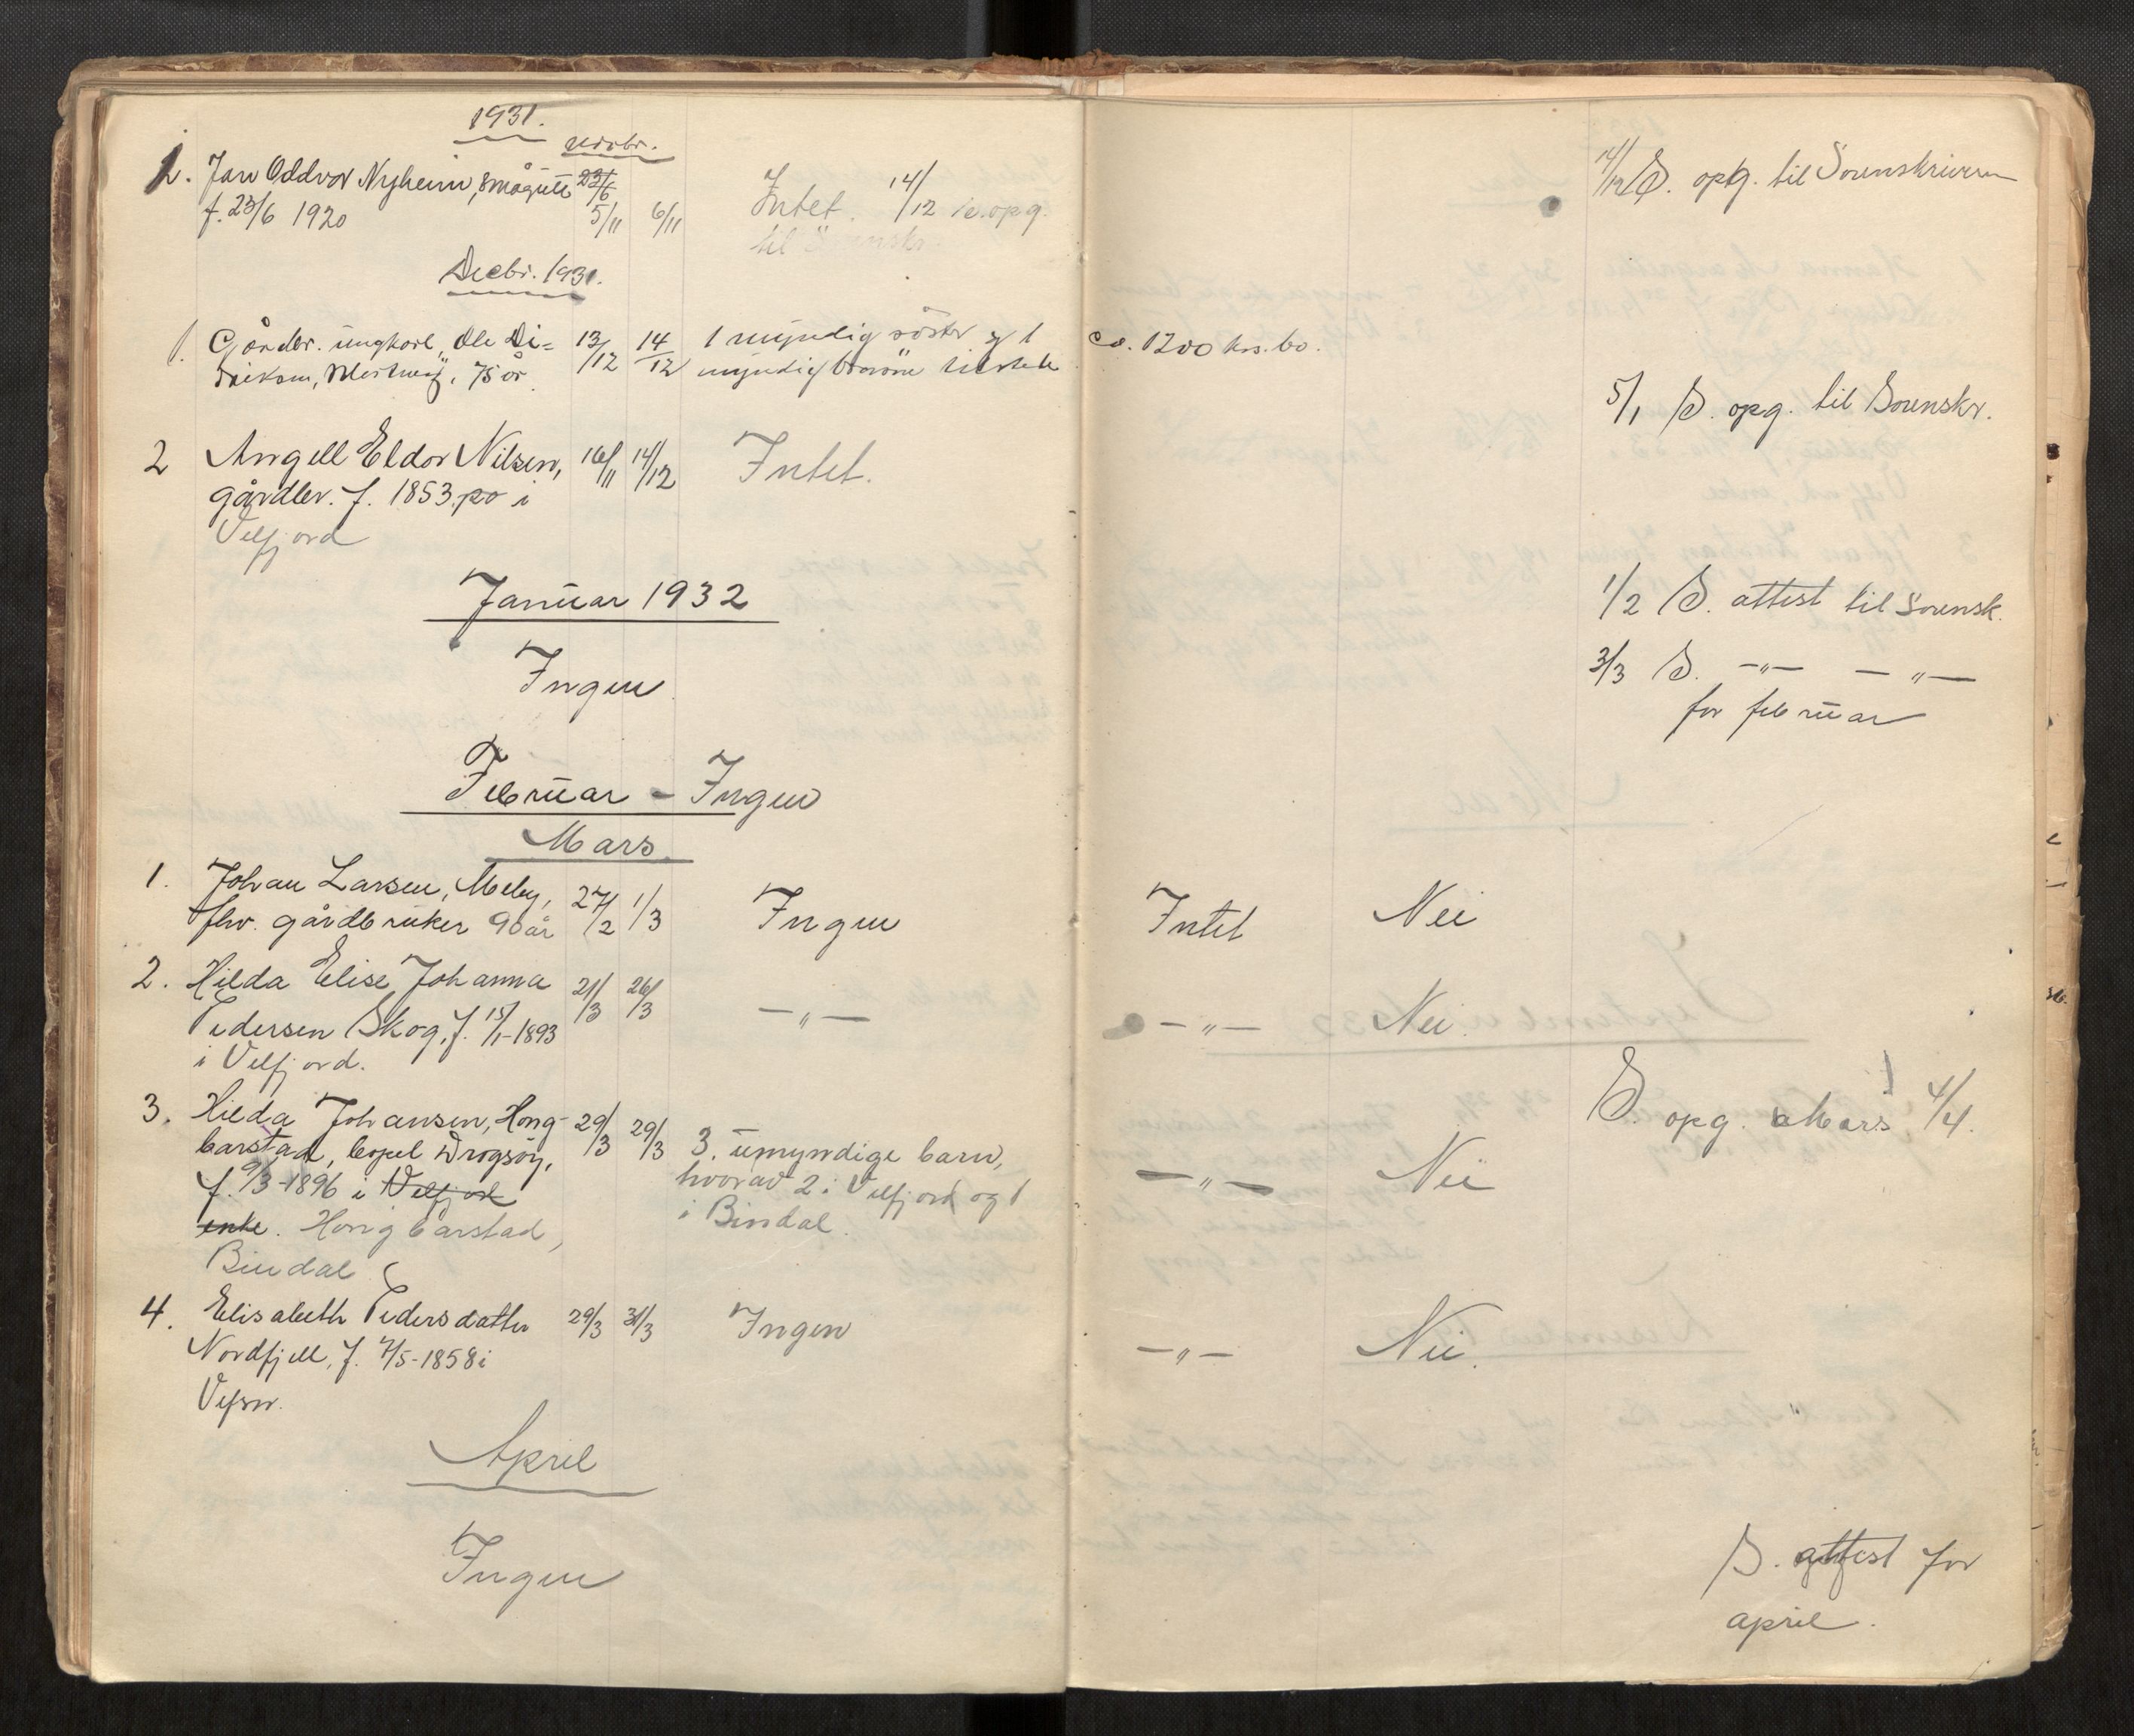 1931.
novbr.
1. Jan Oddvar Nyheim, smågutt 23/6
f. 23/6 1920 5/11 6/11 Intet. 14/12 s. opg.
til Sorenskr.
Decbr. 1931.
1. Gårdbr. ungkarl Ole Di= 13/12 14/12 1 myndig söster og 1
driksen, 75 år. myndig
2 Angell Eldor Nilsen, 16/11 14/12 Intet.
gårdbr. f. 1853 på i
Velfjord
Januar 1932
Ingen
Februar - Ingen
Mars
1. Johan Larsen, Meby, 27/2 1/3 Ingen
fhv. gårdbruker 90 år
2. Hilda Elise Johanna 21/3 26/3 -"-
Pedersen Skog, f. 15/1-1893
i Velfjord.
3. Hilda Johansen, Hong- 29/3 29/3 3 umyndige barn,
barstad, bopel Drogsöy, hvorav 2 i Velfjord og 1
f. 9/3-1896 i Velfjord i Bindal.
enke. Hongbarstad,
Bindal
4. Elisabeth Pedersdatter 29/3 31/3 Ingen
Nordfjell, f. 7/5-1858 i
Vefsn.
April
Ingen
14/12 S. opg. til Sorenskriveren
ca. 1200 krs. bo.
5/1 S. opg. til Sorenskr.
1/2 S. attest til Sorensk.
3/3 S. -"- -"-
for februar
Intet Nei
-"- Nei.
S. opg. Mars 4/4.
-"- Nei
-"- Nei.
S. attest for
april.